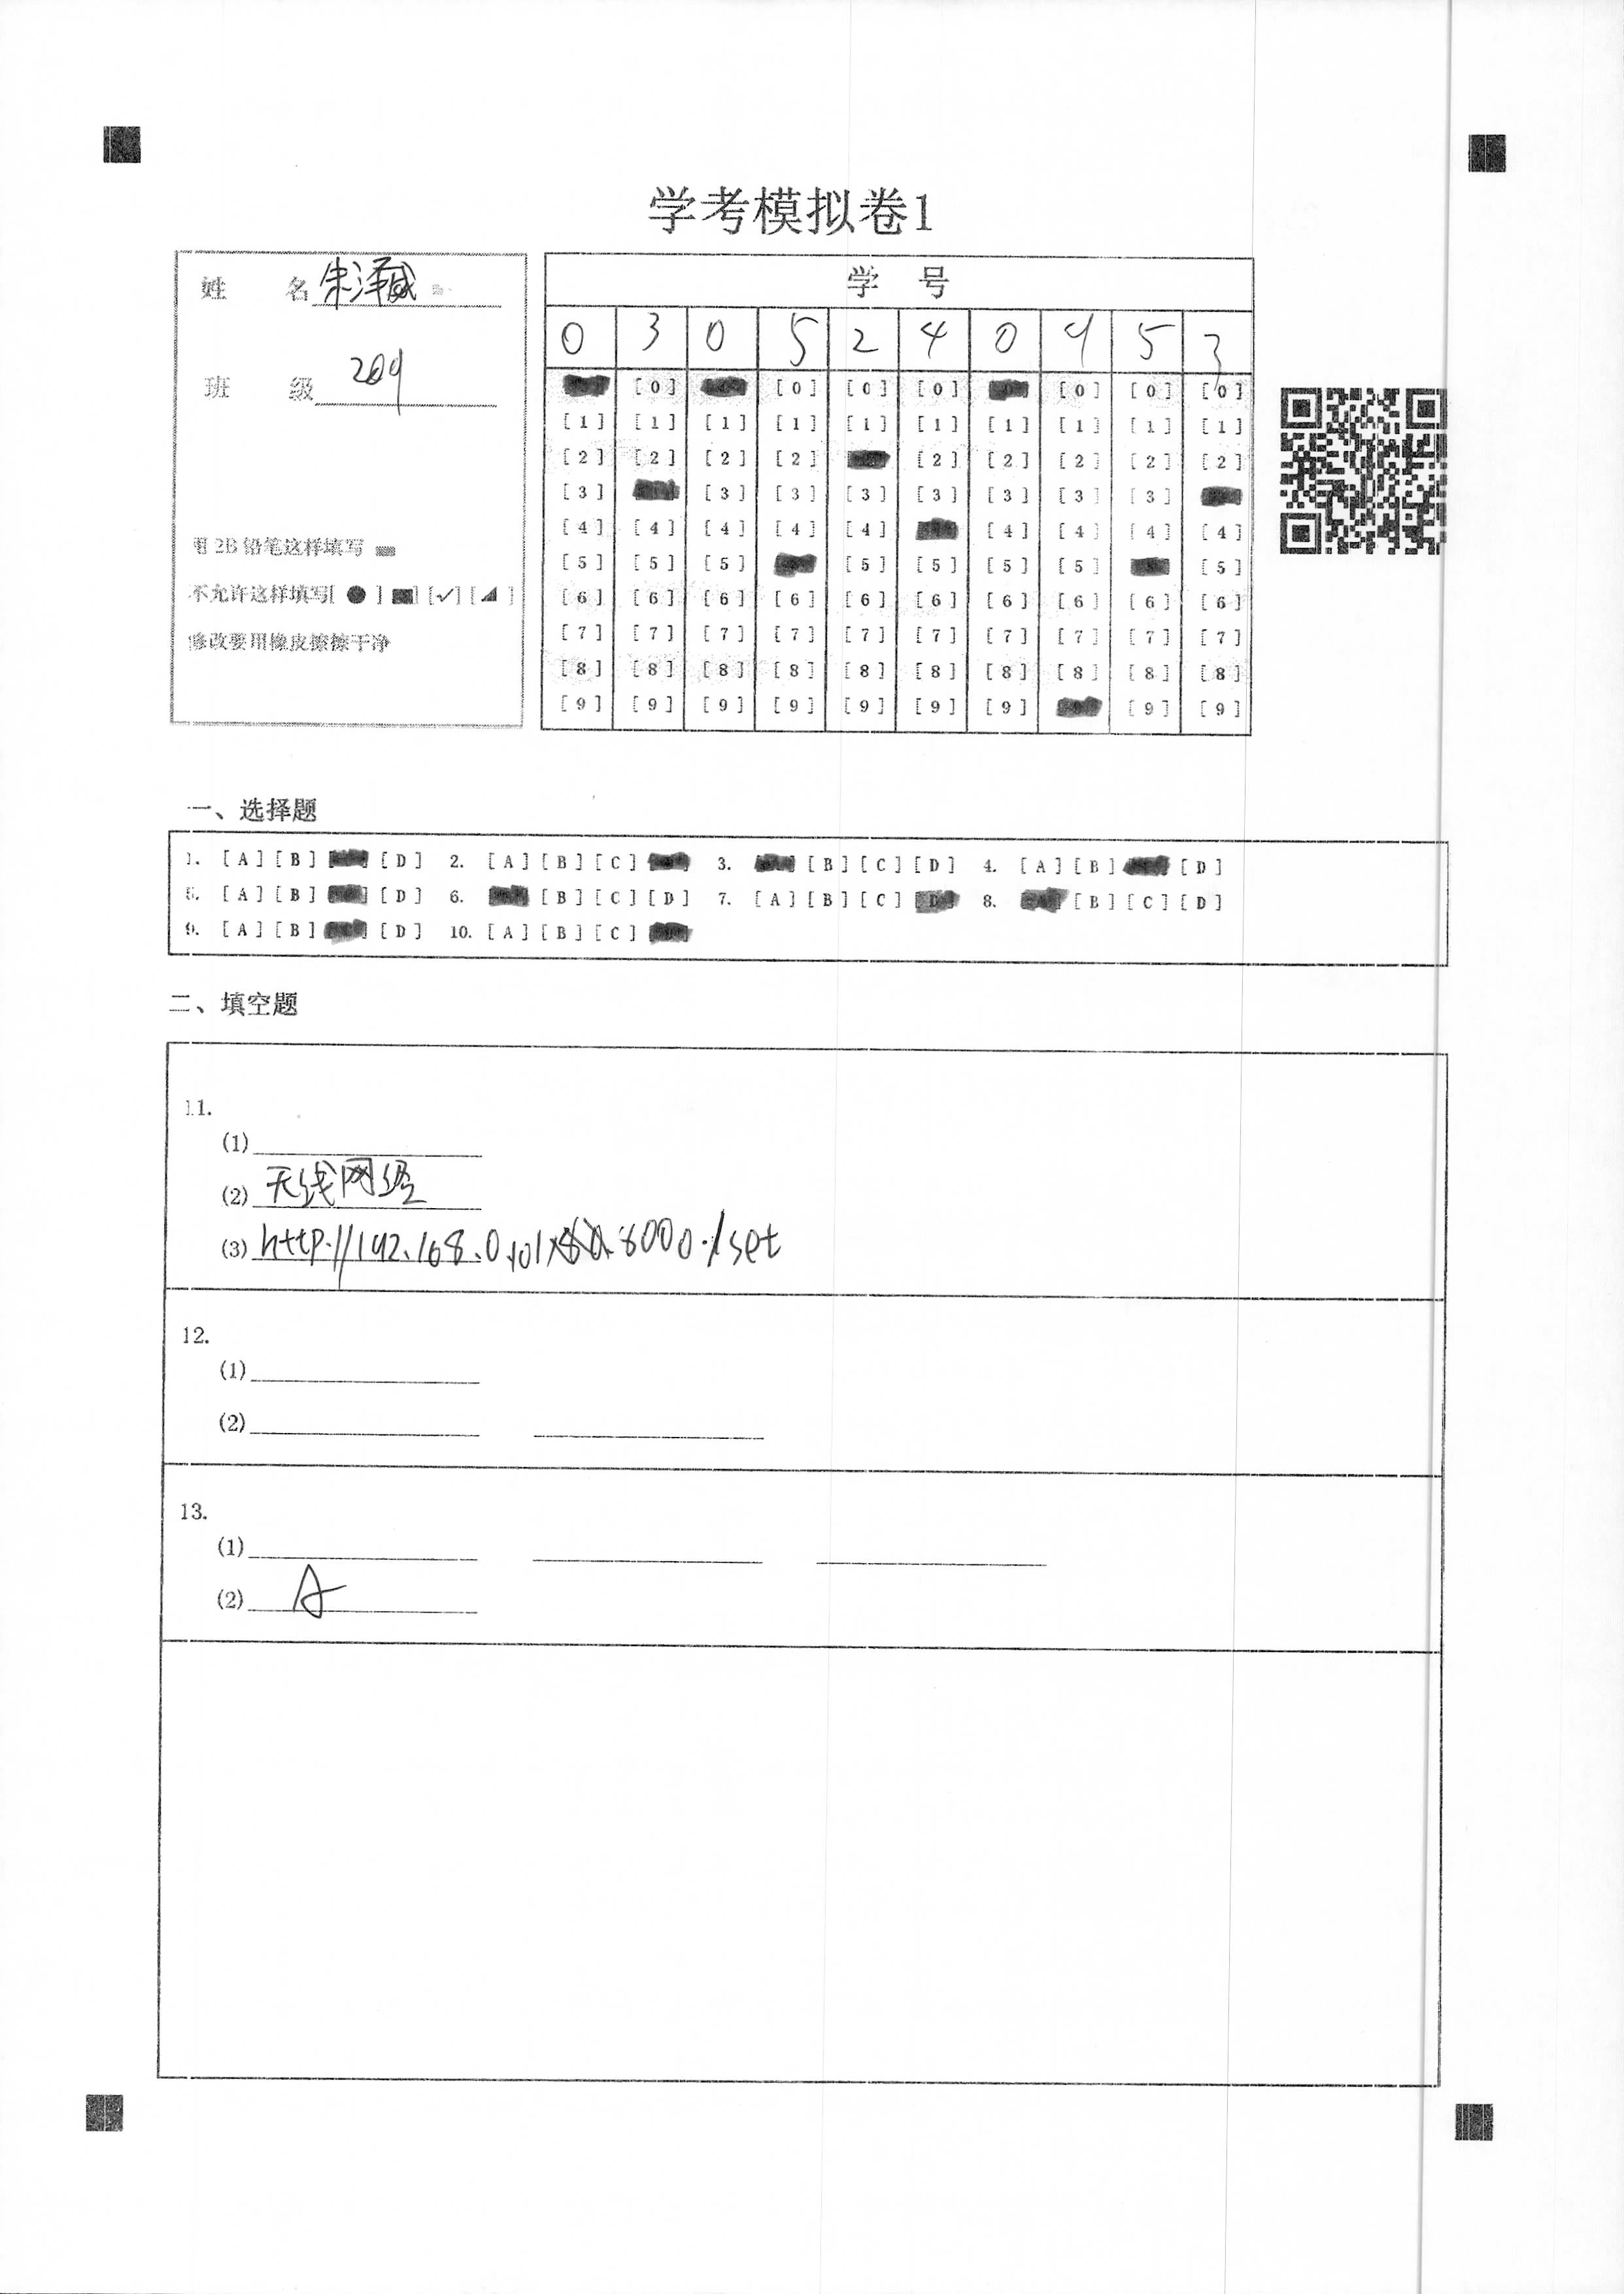 学考模拟卷1
姓 名 朱泽威
班 级 209
用 2B 铅笔这样填写
不允许这样填写[ ● ] [✓] [ ]
修改要用橡皮擦擦干净
学 号
0 3 0 5 2 4 0 9 5 3
[0] [0] [0] [0] [0] [0] [0]
[1] [1] [1] [1] [1] [1] [1] [1] [1] [1]
[2] [2] [2] [2] [2] [2] [2] [2] [2]
[3] [3] [3] [3] [3] [3] [3] [3]
[4] [4] [4] [4] [4] [4] [4] [4] [4]
[5] [5] [5] [5] [5] [5] [5] [5]
[6] [6] [6] [6] [6] [6] [6] [6] [6] [6]
[7] [7] [7] [7] [7] [7] [7] [7] [7] [7]
[8] [8] [8] [8] [8] [8] [8] [8] [8] [8]
[9] [9] [9] [9] [9] [9] [9] [9] [9]
一、选择题
1. [A] [B] [D] 2. [A] [B] [C] 3. [B] [C] [D] 4. [A] [B] [D]
5. [A] [B] [D] 6. [B] [C] [D] 7. [A] [B] [C] [D] 8. [B] [C] [D]
9. [A] [B] [D] 10. [A] [B] [C]
二、填空题
11.
(1)
(2) 无线网络
(3) http://192.168.0.101:8000/set
12.
(1)
(2)
13.
(1)
(2) A